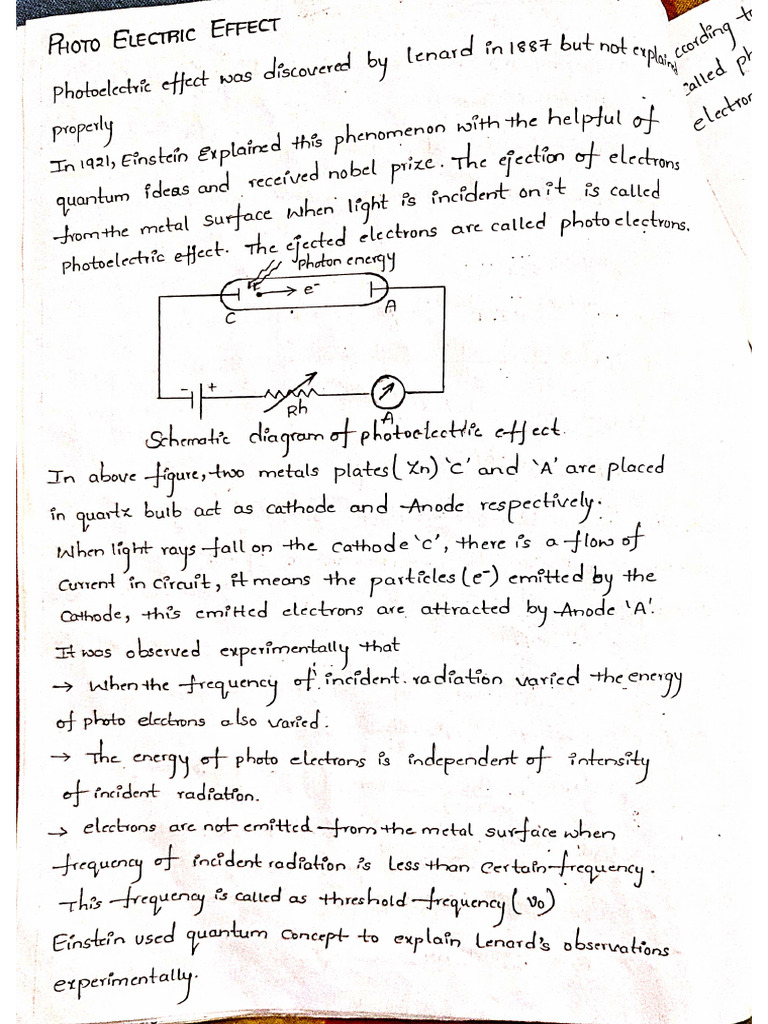 PHOTO ELECTRIC EFFECT
Photoelectric effect was discovered by lenard in 1887 but not explained
properly
In 1921, Einstein Explained this phenomenon with the helpful of
quantum ideas and received nobel prize. The ejection of electrons
from the metal surface when light is incident on it is called
photoelectric effect. The ejected electrons are called photo electrons.
Photon energy
e-
C
A
- +
Rh
A
Schematic diagram of photoelectric effect.
In above figure, two metals plates (Zn) 'C' and 'A' are placed
in quartz bulb act as cathode and Anode respectively.
When light rays fall on the cathode 'C', there is a flow of
Current in circuit, it means the particles (e-) emitted by the
Cathode, this emitted electrons are attracted by Anode 'A'.
It was observed experimentally that
→ When the frequency of incident radiation varied the energy
of photo electrons also varied.
→ The energy of photo electrons is independent of intensity
of incident radiation.
→ electrons are not emitted from the metal surface when
frequency of incident radiation is less than certain frequency.
This frequency is called as threshold frequency (ν0)
Einstein used quantum concept to explain Lenard's observations
experimentally.
ccording t
called ph
electron